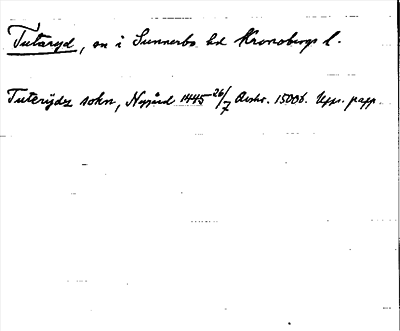 Tutaryd, sn i Sunnerbo hd Kronobergs l.
Tuterijdz sokn, Nygård 1445 26/7 Avskr. 1500b. Upps. papp.